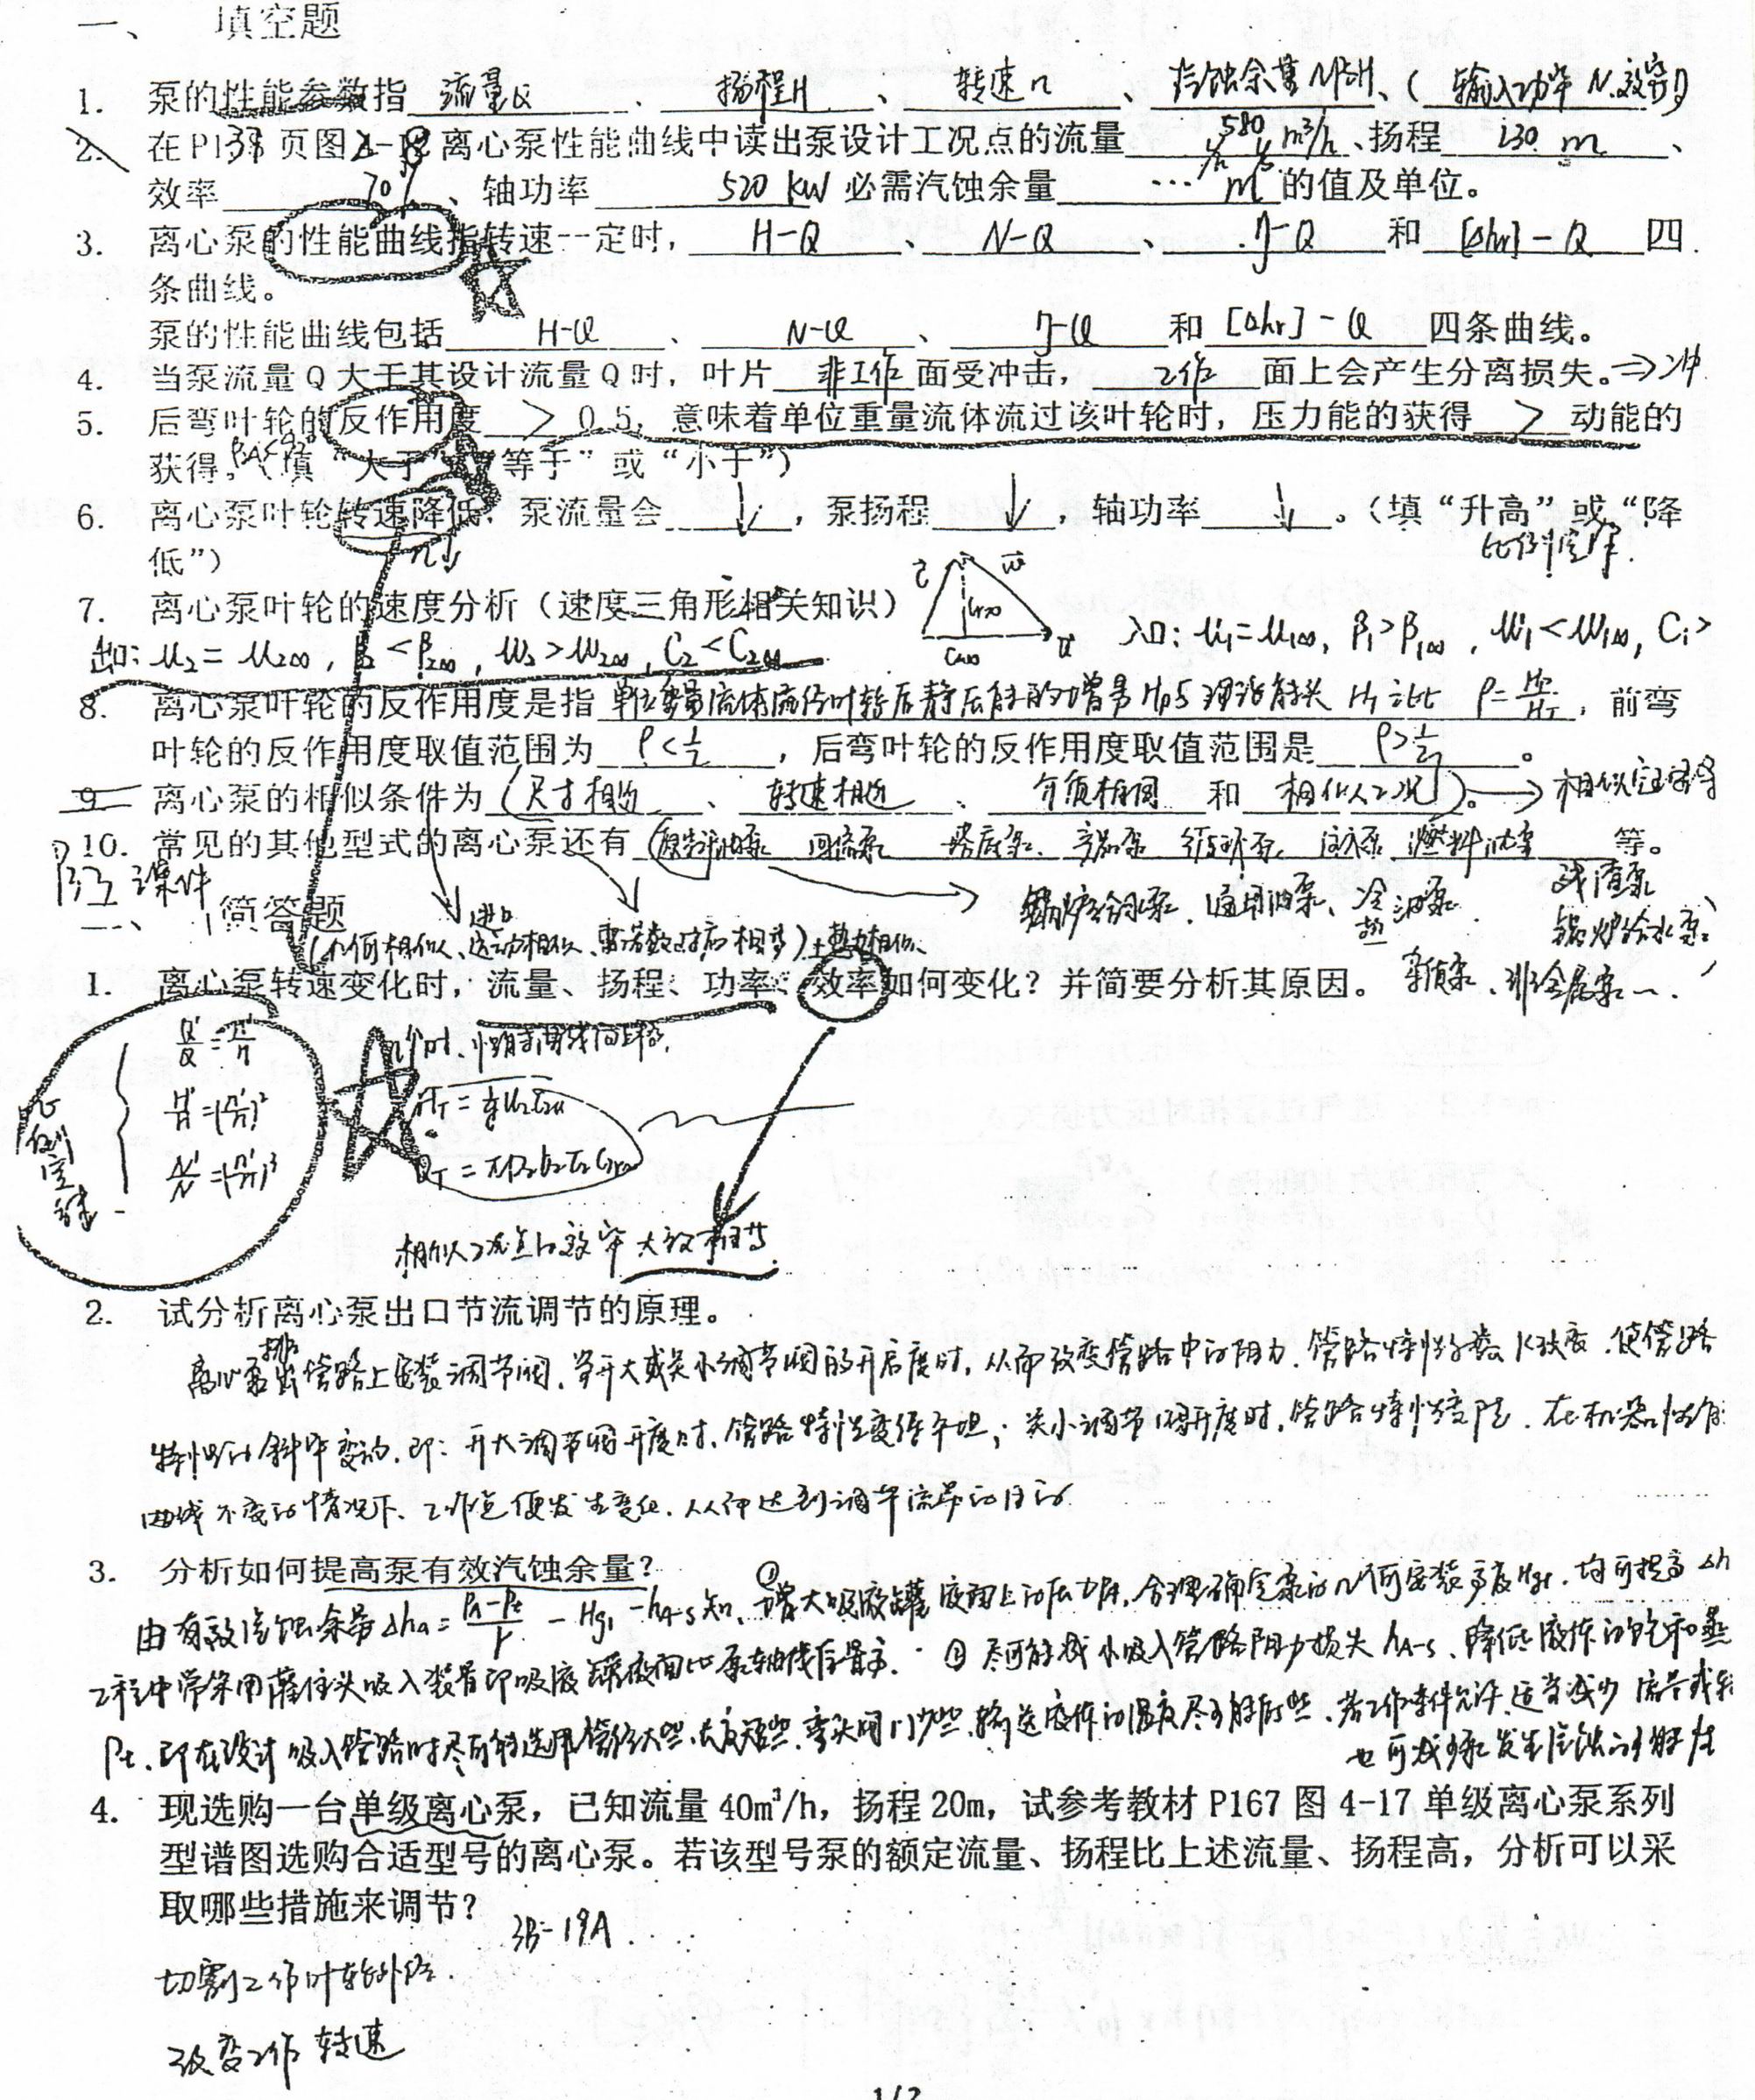 一、 填空题
1. 泵的性能参数指 流量Q 、 扬程H 、 转速n 、 汽蚀余量NPSH、( 输入功率 N.效率η)
2. 在P138页图 离心泵性能曲线中读出泵设计工况点的流量 580 m³/h 、扬程 230 m 、
效率 70% 、轴功率 520 kW 必需汽蚀余量 m 的值及单位。
3. 离心泵的性能曲线指转速一定时， H-Q 、 N-Q 、 η-Q 和 [Δhr]-Q 四
条曲线。
泵的性能曲线包括 H-Q 、 N-Q 、 η-Q 和 [Δhr]-Q 四条曲线。
4. 当泵流量Q大于其设计流量Q时，叶片 非工作 面受冲击， 工作 面上会产生分离损失。⇒冲
5. 后弯叶轮的反作用度 > 0.5，意味着单位重量流体流过该叶轮时，压力能的获得 > 动能的
获得。（填“大于”“等于”或“小于”）
6. 离心泵叶轮转速降低，泵流量会 ↓ ，泵扬程 ↓ ，轴功率 ↓ 。（填“升高”或“降
低”） n↓ 比例定律.
7. 离心泵叶轮的速度分析（速度三角形相关知识）
出口: u₂=u₂∞, β₂<β₂∞, w₂>w₂∞, C₂<C₂∞ 入口: u₁=u₁∞, β₁>β₁∞, w₁<w₁∞, C₁>
8. 离心泵叶轮的反作用度是指 单位重量流体流经叶轮后静压能的增量Hp与理论能头 HT之比 ρ=Hp/HT ，前弯
叶轮的反作用度取值范围为 ρ<1/2 ，后弯叶轮的反作用度取值范围是 ρ>1/2 。
9. 离心泵的相似条件为 (尺寸相近 、 转速相近 、 介质相同 和 相似工况) 。→相似定律
10. 常见的其他型式的离心泵还有 回流泵 液下泵 燃料油泵 等。
课件 锅炉给水泵、通用油泵、冷热油泵 残渣泵
锅炉给水泵
二、 简答题
(几何相似、进口运动相似、雷诺数对应相等)+热力相似、
杂质泵、非金属泵
1. 离心泵转速变化时，流量、扬程、功率、效率如何变化？并简要分析其原因。
n↑时、性能曲线向上移,
比例定律
Q'/Q=n'/n
H'/H=(n'/n)²
N'/N=(n'/n)³
HT=1/g u₂C₂u
QT=πD₂b₂τ₂C₂r
相似工况点的效率大致相等
2. 试分析离心泵出口节流调节的原理。
离心泵排出管路上安装调节阀，当开大或关小调节阀的开启度时，从而改变管路中的阻力，管路特性系数K改变，使管路
特性的斜率变动，即：开大调节阀开度时，管路特性变得平坦；关小调节阀开度时，管路特性变陡，在机器性能
曲线不变的情况下、工作点便发生变化，从而达到调节流量的目的
3. 分析如何提高泵有效汽蚀余量？
由有效汽蚀余量Δha=(PA-Pt)/γ -Hg1-hA-s知，①增大吸液罐液面上的压力PA，合理确定泵的几何安装高度Hg1，均可提高Δh
工程中常采用灌注头吸入装置即吸液罐液面比泵轴线位置高. ②尽可能减小吸入管路阻力损失hA-s、降低液体的饱和蒸
Pt，即在设计吸入管路时尽可能选用管径大些、长度短些、弯头阀门少些，输送液体的温度尽可能低些，若工作条件允许，适当减少流量或转
也可减少泵发生汽蚀的可能性
4. 现选购一台单级离心泵，已知流量 40m³/h，扬程 20m，试参考教材 P167 图 4-17 单级离心泵系列
型谱图选购合适型号的离心泵。若该型号泵的额定流量、扬程比上述流量、扬程高，分析可以采
取哪些措施来调节？
3B-19A
切割工作叶轮外径.
改变工作转速
1/2